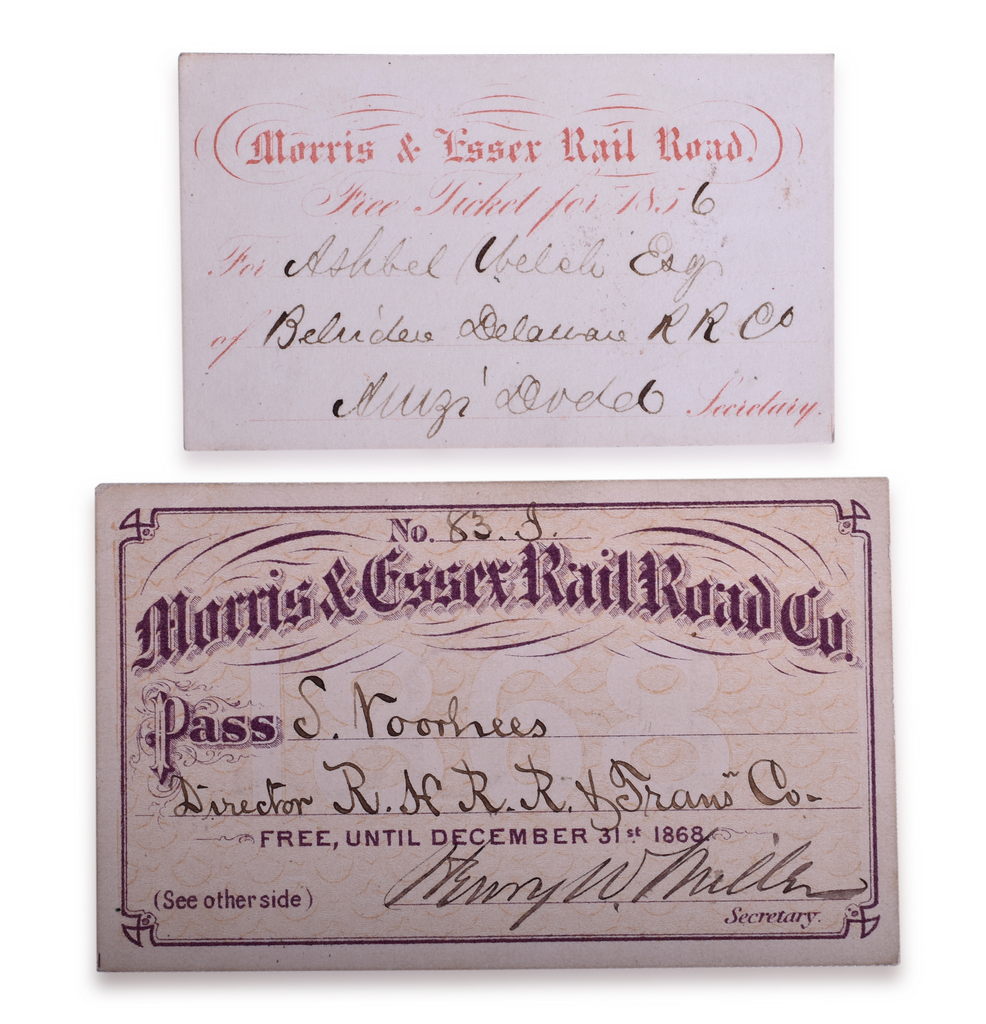 Morris & Essex Rail Road.
Free Ticket for 1856
For Ashbel Welch Esq
of Belvidere Delaware R R Co
Amzi Dodd Secretary.
No. 83. J.
Morris & Essex Rail Road Co.
1868
Pass S. Voorhees
Director R. & R. R. & Trans Co-
FREE, UNTIL DECEMBER 31st 1868.
Henry W. Miller
(See other side)
Secretary.